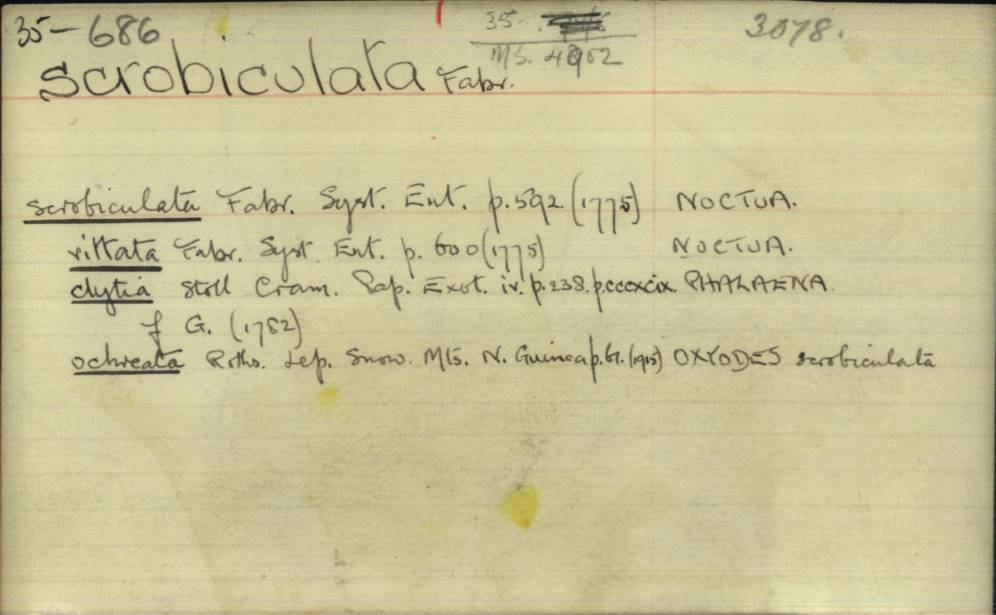 35-686
35-
3078.
MS. 4962
scrobiculata Fabr.
scrobiculata Fabr. Syst. Ent. p. 592 (1775) NOCTUA.
vittata Fabr. Syst. Ent. p. 600 (1775) NOCTUA.
clytia Stoll Cram. Pap. Exot. iv. p. 238. p. cccxcix. PHALAENA.
f G. (1782)
ochreata Roths. Lep. Snow. Mts. N. Guinea p. 61. (1915) OXYODES scrobiculata